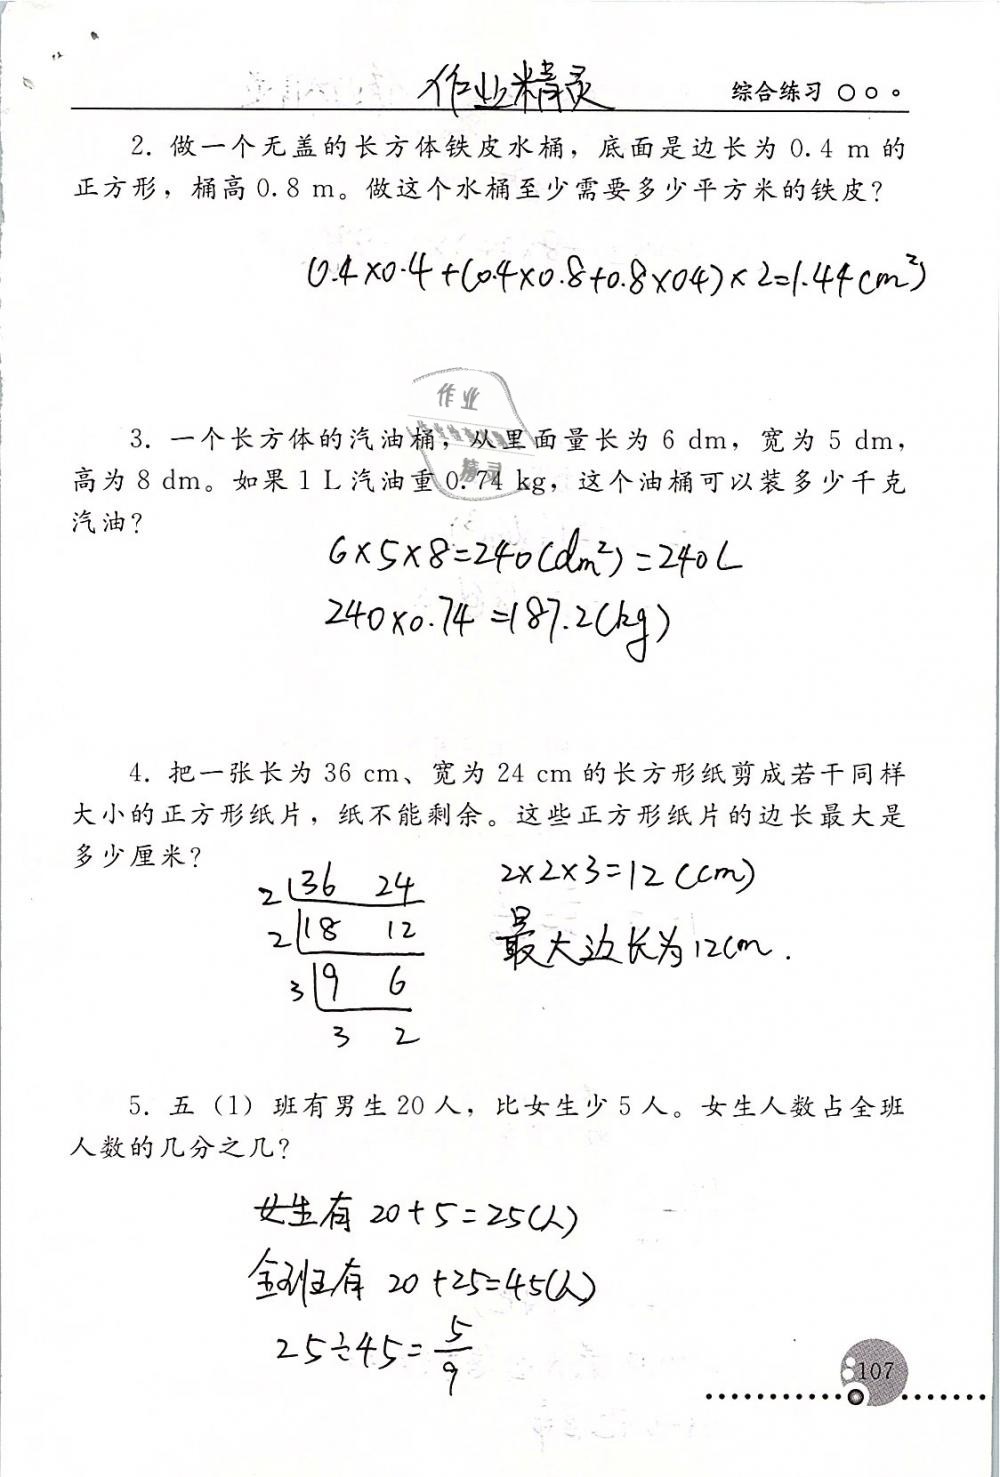 作业精灵
综合练习
2. 做一个无盖的长方体铁皮水桶，底面是边长为 0.4 m 的
正方形，桶高 0.8 m。做这个水桶至少需要多少平方米的铁皮？
0.4×0.4+(0.4×0.8+0.8×04)×2=1.44(m²)
作业
精灵
3. 一个长方体的汽油桶，从里面量长为 6 dm，宽为 5 dm，
高为 8 dm。如果 1 L 汽油重 0.74 kg，这个油桶可以装多少千克
汽油？
6×5×8=240(dm²)=240L
240×0.74=187.2(kg)
4. 把一张长为 36 cm、宽为 24 cm 的长方形纸剪成若干同样
大小的正方形纸片，纸不能剩余。这些正方形纸片的边长最大是
多少厘米？
2 36 24
2 18 12
3 9 6
3 2
2×2×3=12(cm)
最大边长为12cm.
5. 五（1）班有男生 20 人，比女生少 5 人。女生人数占全班
人数的几分之几？
女生有 20+5=25(人)
全班有 20+25=45(人)
25÷45=5/9
107